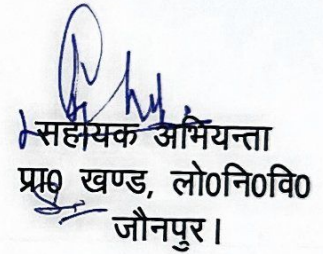 सहायक अभियन्ता
प्रा0 खण्ड, लो0नि0वि0
जौनपुर।